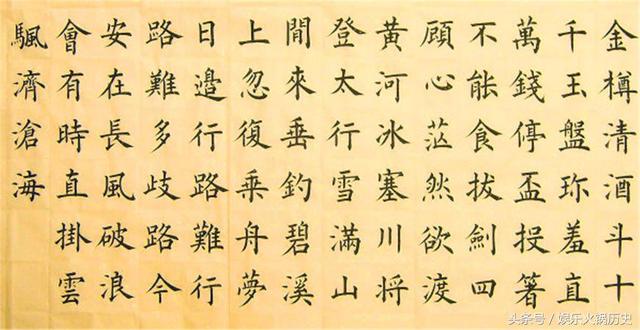 金樽清酒斗十
千玉盤珎羞直
萬錢停盃投箸
不能食拔劍四
顧心茫然欲渡
黃河冰塞川將
登太行雪滿山
間來垂釣碧溪
上忽復乗舟夢
日邊行路難行
路難多歧路今
安在長風破浪
會有時直掛雲
颿濟滄海
头条号／娱乐火锅历史